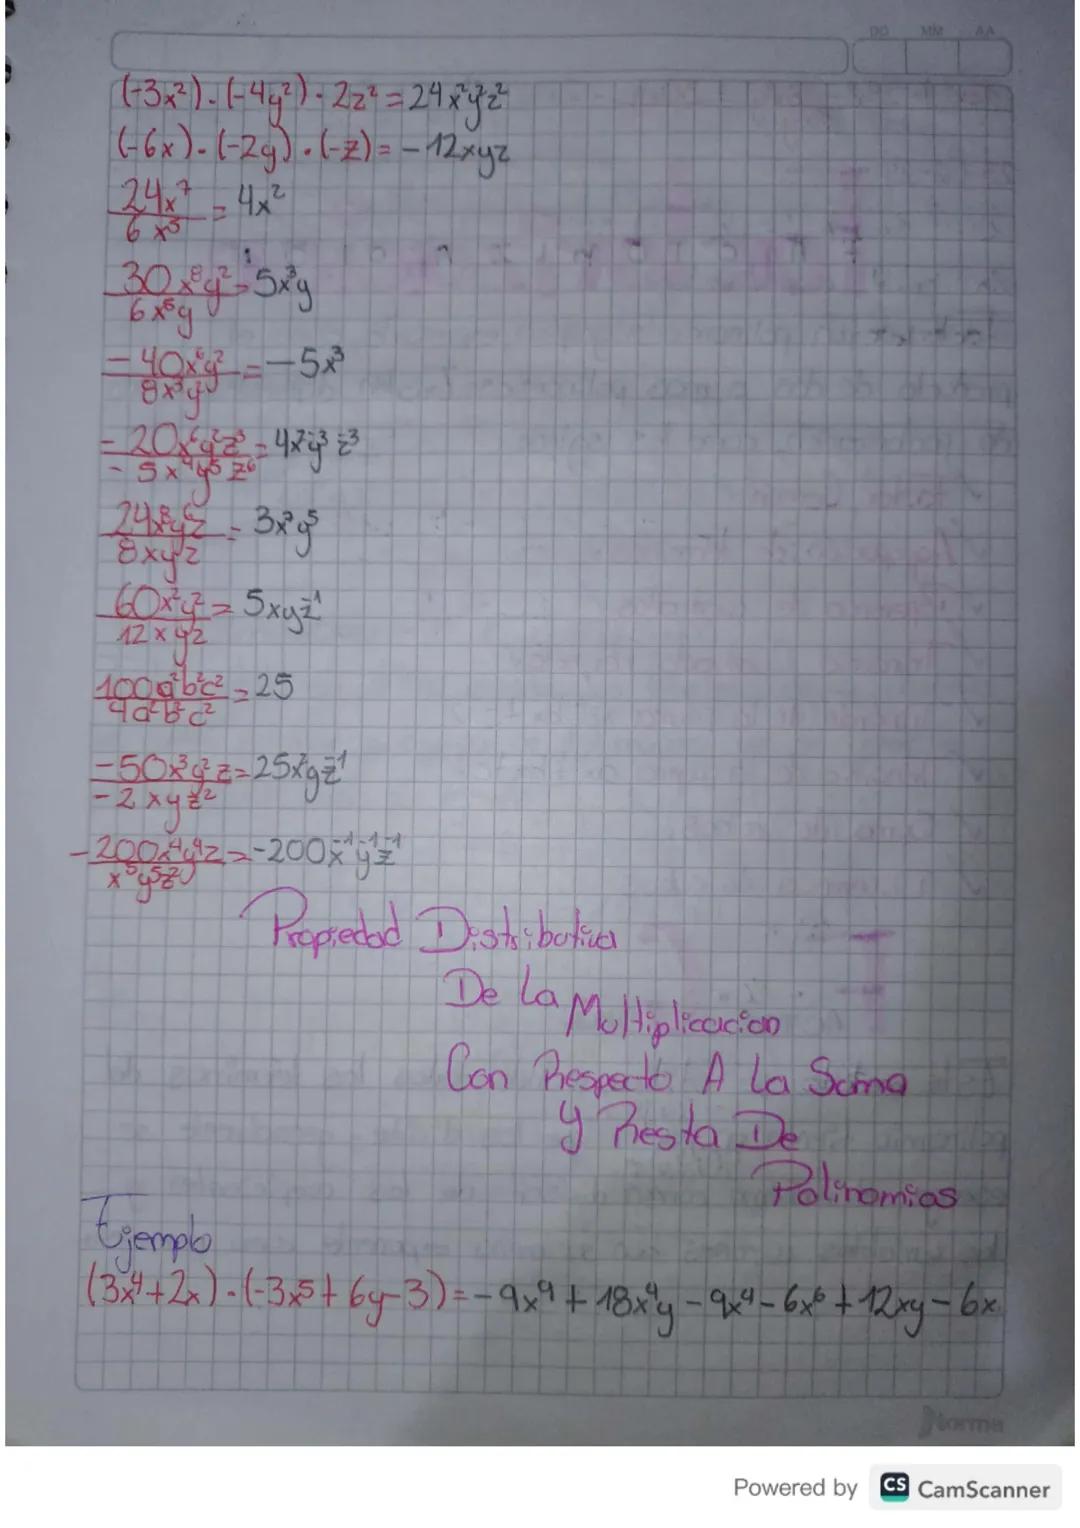 DD MM AA
(-3x²).(-4y²).2z²=24x²y²z²
(-6x).(-2y).(-z)=-12xyz
24x⁷/6x⁵=4x²
30x⁸y²/6x⁵y=5x³y
-40x⁶y²/8x³y²=-5x³
-20x⁶y²z³/-5x⁴y⁵z⁶=4x²y⁻³z⁻³
24x⁸y⁶z/8xyz=3x⁷y⁵
60x²y²/12xyz=5xyz⁻¹
100a²b²c²/4a²b²c²=25
-50x³y²z/-2xyz²=25x²yz⁻¹
-200x⁴y⁴z/x⁵y⁵z²=-200x⁻¹y⁻¹z⁻¹
Propiedad Distributiva
De La Multiplicacion
Con Respecto A La Suma
y Resta De
Polinomios
Ejemplo
(3x⁴+2x).(-3x⁵+6y-3)=-9x⁹+18x⁴y-9x⁴-6x⁶+12xy-6x
Norma
Powered by CS CamScanner